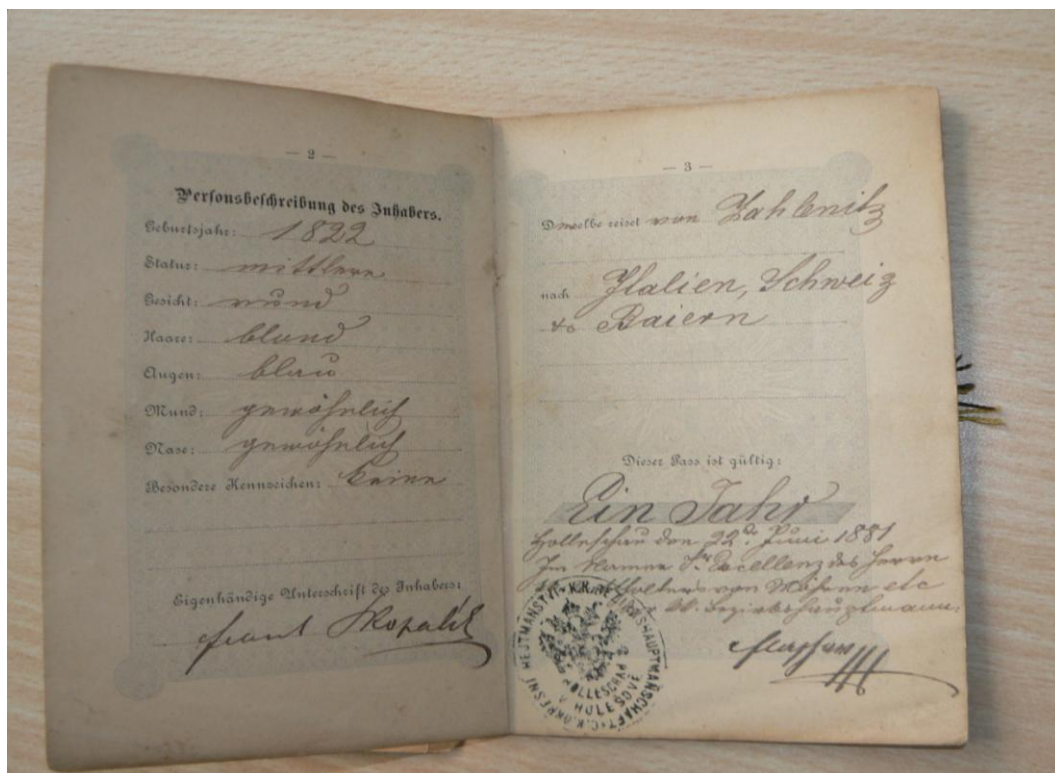 — 2 —
Personsbeschreibung des Inhabers.
Geburtsjahr: 1822
Statur: mittlere
Gesicht: rund
Haare: blond
Augen: blau
Mund: gewöhnlich
Nase: gewöhnlich
Besondere Kennzeichen: keine
Eigenhändige Unterschrift des Inhabers:
Skopalik
— 3 —
Derselbe reiset von Zahlenitz
nach Italien, Schweiz
Baiern
Dieser Pass ist gültig:
Ein Jahr
Holleschau den 22 Juni 1881
Im Namen Sr Excellenz des Herrn
Statthalters von Mähren etc
Der k.k. Bezirkshauptmann
K.K. BEZIRKSHAUPTMANSCHAFT
HOLLESCHAU
C.K. OKRESNÍ HEJTMANSTVÍ
V HOLEŠOVĚ